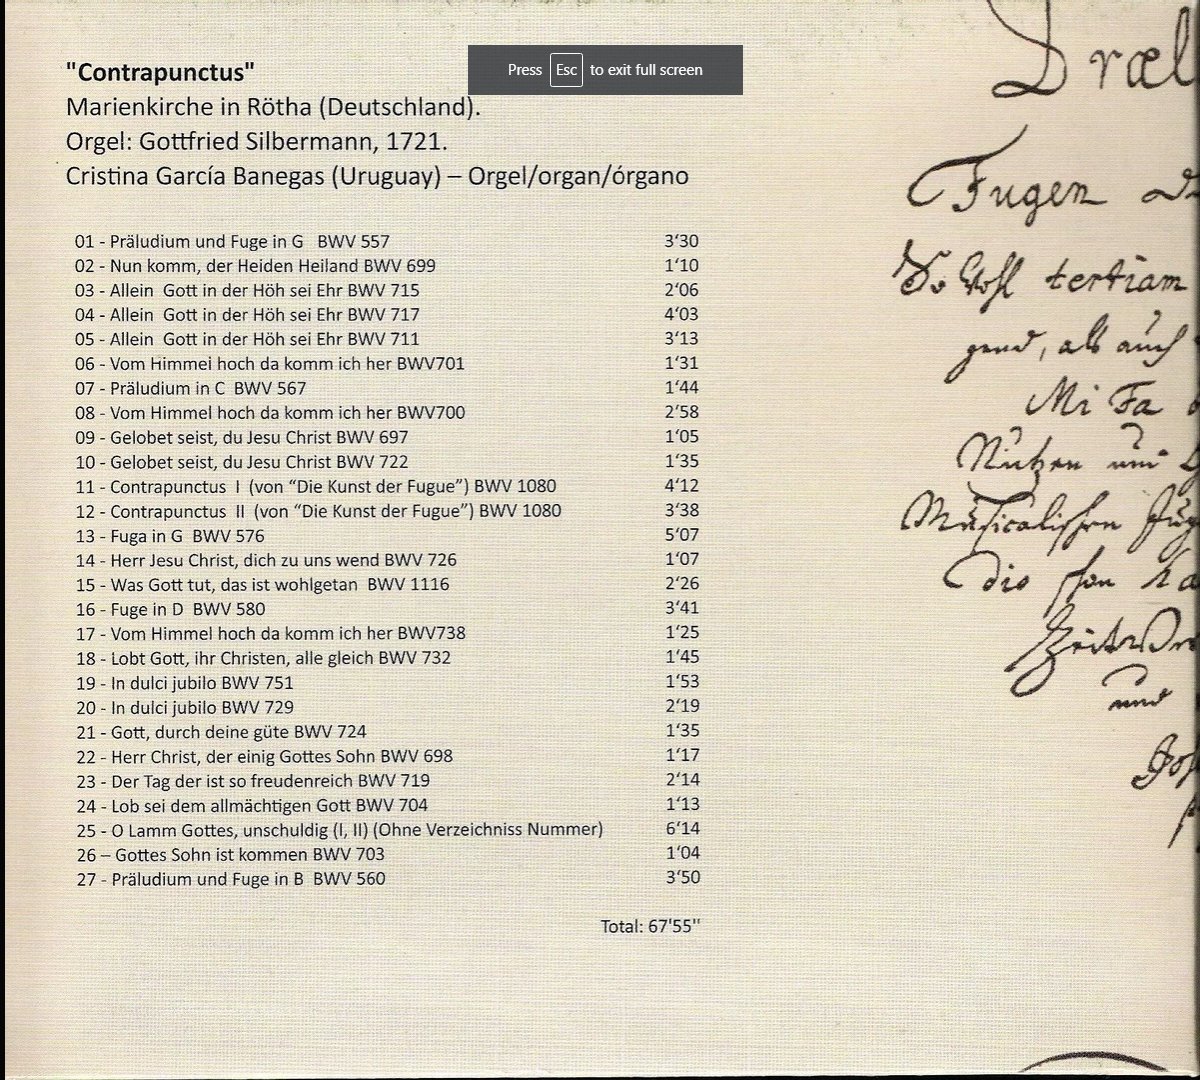 "Contrapunctus"
Press Esc to exit full screen
Marienkirche in Rötha (Deutschland).
Orgel: Gottfried Silbermann, 1721.
Cristina García Banegas (Uruguay) – Orgel/organ/órgano
01 - Präludium und Fuge in G BWV 557 3‘30
02 - Nun komm, der Heiden Heiland BWV 699 1‘10
03 - Allein Gott in der Höh sei Ehr BWV 715 2‘06
04 - Allein Gott in der Höh sei Ehr BWV 717 4‘03
05 - Allein Gott in der Höh sei Ehr BWV 711 3‘13
06 - Vom Himmel hoch da komm ich her BWV701 1‘31
07 - Präludium in C BWV 567 1‘44
08 - Vom Himmel hoch da komm ich her BWV700 2‘58
09 - Gelobet seist, du Jesu Christ BWV 697 1‘05
10 - Gelobet seist, du Jesu Christ BWV 722 1‘35
11 - Contrapunctus I (von “Die Kunst der Fugue”) BWV 1080 4‘12
12 - Contrapunctus II (von “Die Kunst der Fugue”) BWV 1080 3‘38
13 - Fuga in G BWV 576 5‘07
14 - Herr Jesu Christ, dich zu uns wend BWV 726 1‘07
15 - Was Gott tut, das ist wohlgetan BWV 1116 2‘26
16 - Fuge in D BWV 580 3‘41
17 - Vom Himmel hoch da komm ich her BWV738 1‘25
18 - Lobt Gott, ihr Christen, alle gleich BWV 732 1‘45
19 - In dulci jubilo BWV 751 1‘53
20 - In dulci jubilo BWV 729 2‘19
21 - Gott, durch deine güte BWV 724 1‘35
22 - Herr Christ, der einig Gottes Sohn BWV 698 1‘17
23 - Der Tag der ist so freudenreich BWV 719 2‘14
24 - Lob sei dem allmächtigen Gott BWV 704 1‘13
25 - O Lamm Gottes, unschuldig (I, II) (Ohne Verzeichniss Nummer) 6‘14
26 – Gottes Sohn ist kommen BWV 703 1‘04
27 - Präludium und Fuge in B BWV 560 3‘50
Total: 67'55"
Fugen
tertiam
als auch
Mi Fa
Nutzen und
Musicalischen
die schon
und